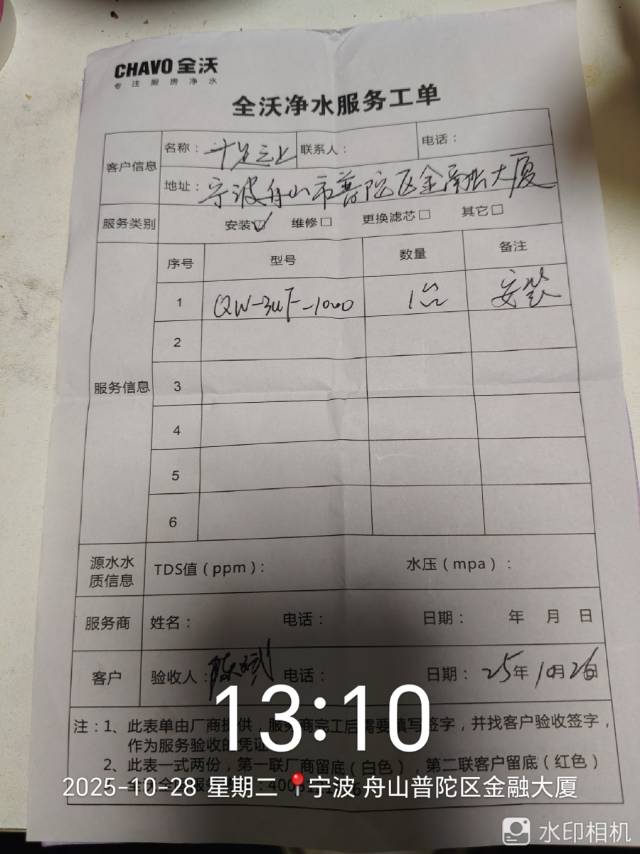 CHAVO 全沃
专注厨房净水
全沃净水服务工单
客户信息 名称：十足之上 联系人： 电话：
地址：宁波舟山市普陀区金融大厦
服务类别 安装☑ 维修□ 更换滤芯□ 其它□
服务信息 序号 型号 数量 备注
1 QW-3UF-1000 1台 安装
2
3
4
5
6
源水水质信息 TDS值（ppm）： 水压（mpa）：
服务商 姓名： 电话： 日期： 年 月 日
客户 验收人： 电话： 日期：25年10月26
注：1、此表单由厂商提供，服务商完工后需要填写签字，并找客户验收签字，
作为服务验收的凭证
2、此表一式两份，第一联厂商留底（白色），第二联客户留底（红色）
13:10
2025-10-28 星期二 宁波·舟山普陀区金融大厦
水印相机